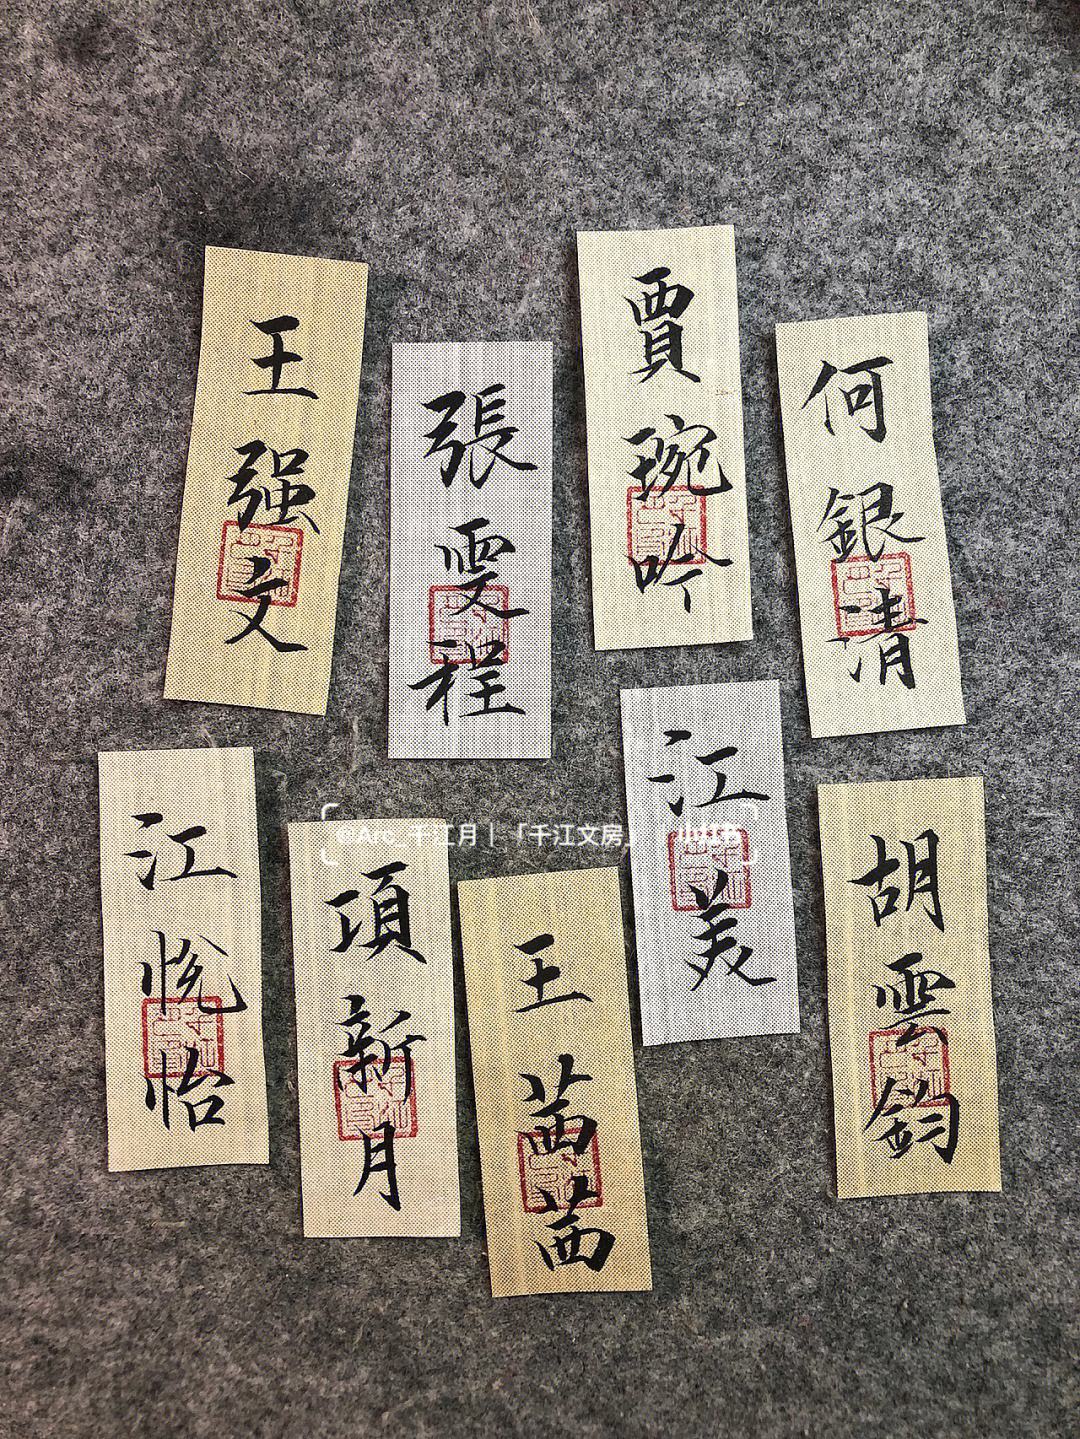 王强文
張雯程
賈琬吟
何銀清
江悦怡
項新月
王茜茜
江美
胡雲鈞
@Arc_千江月 | 「千江文房」